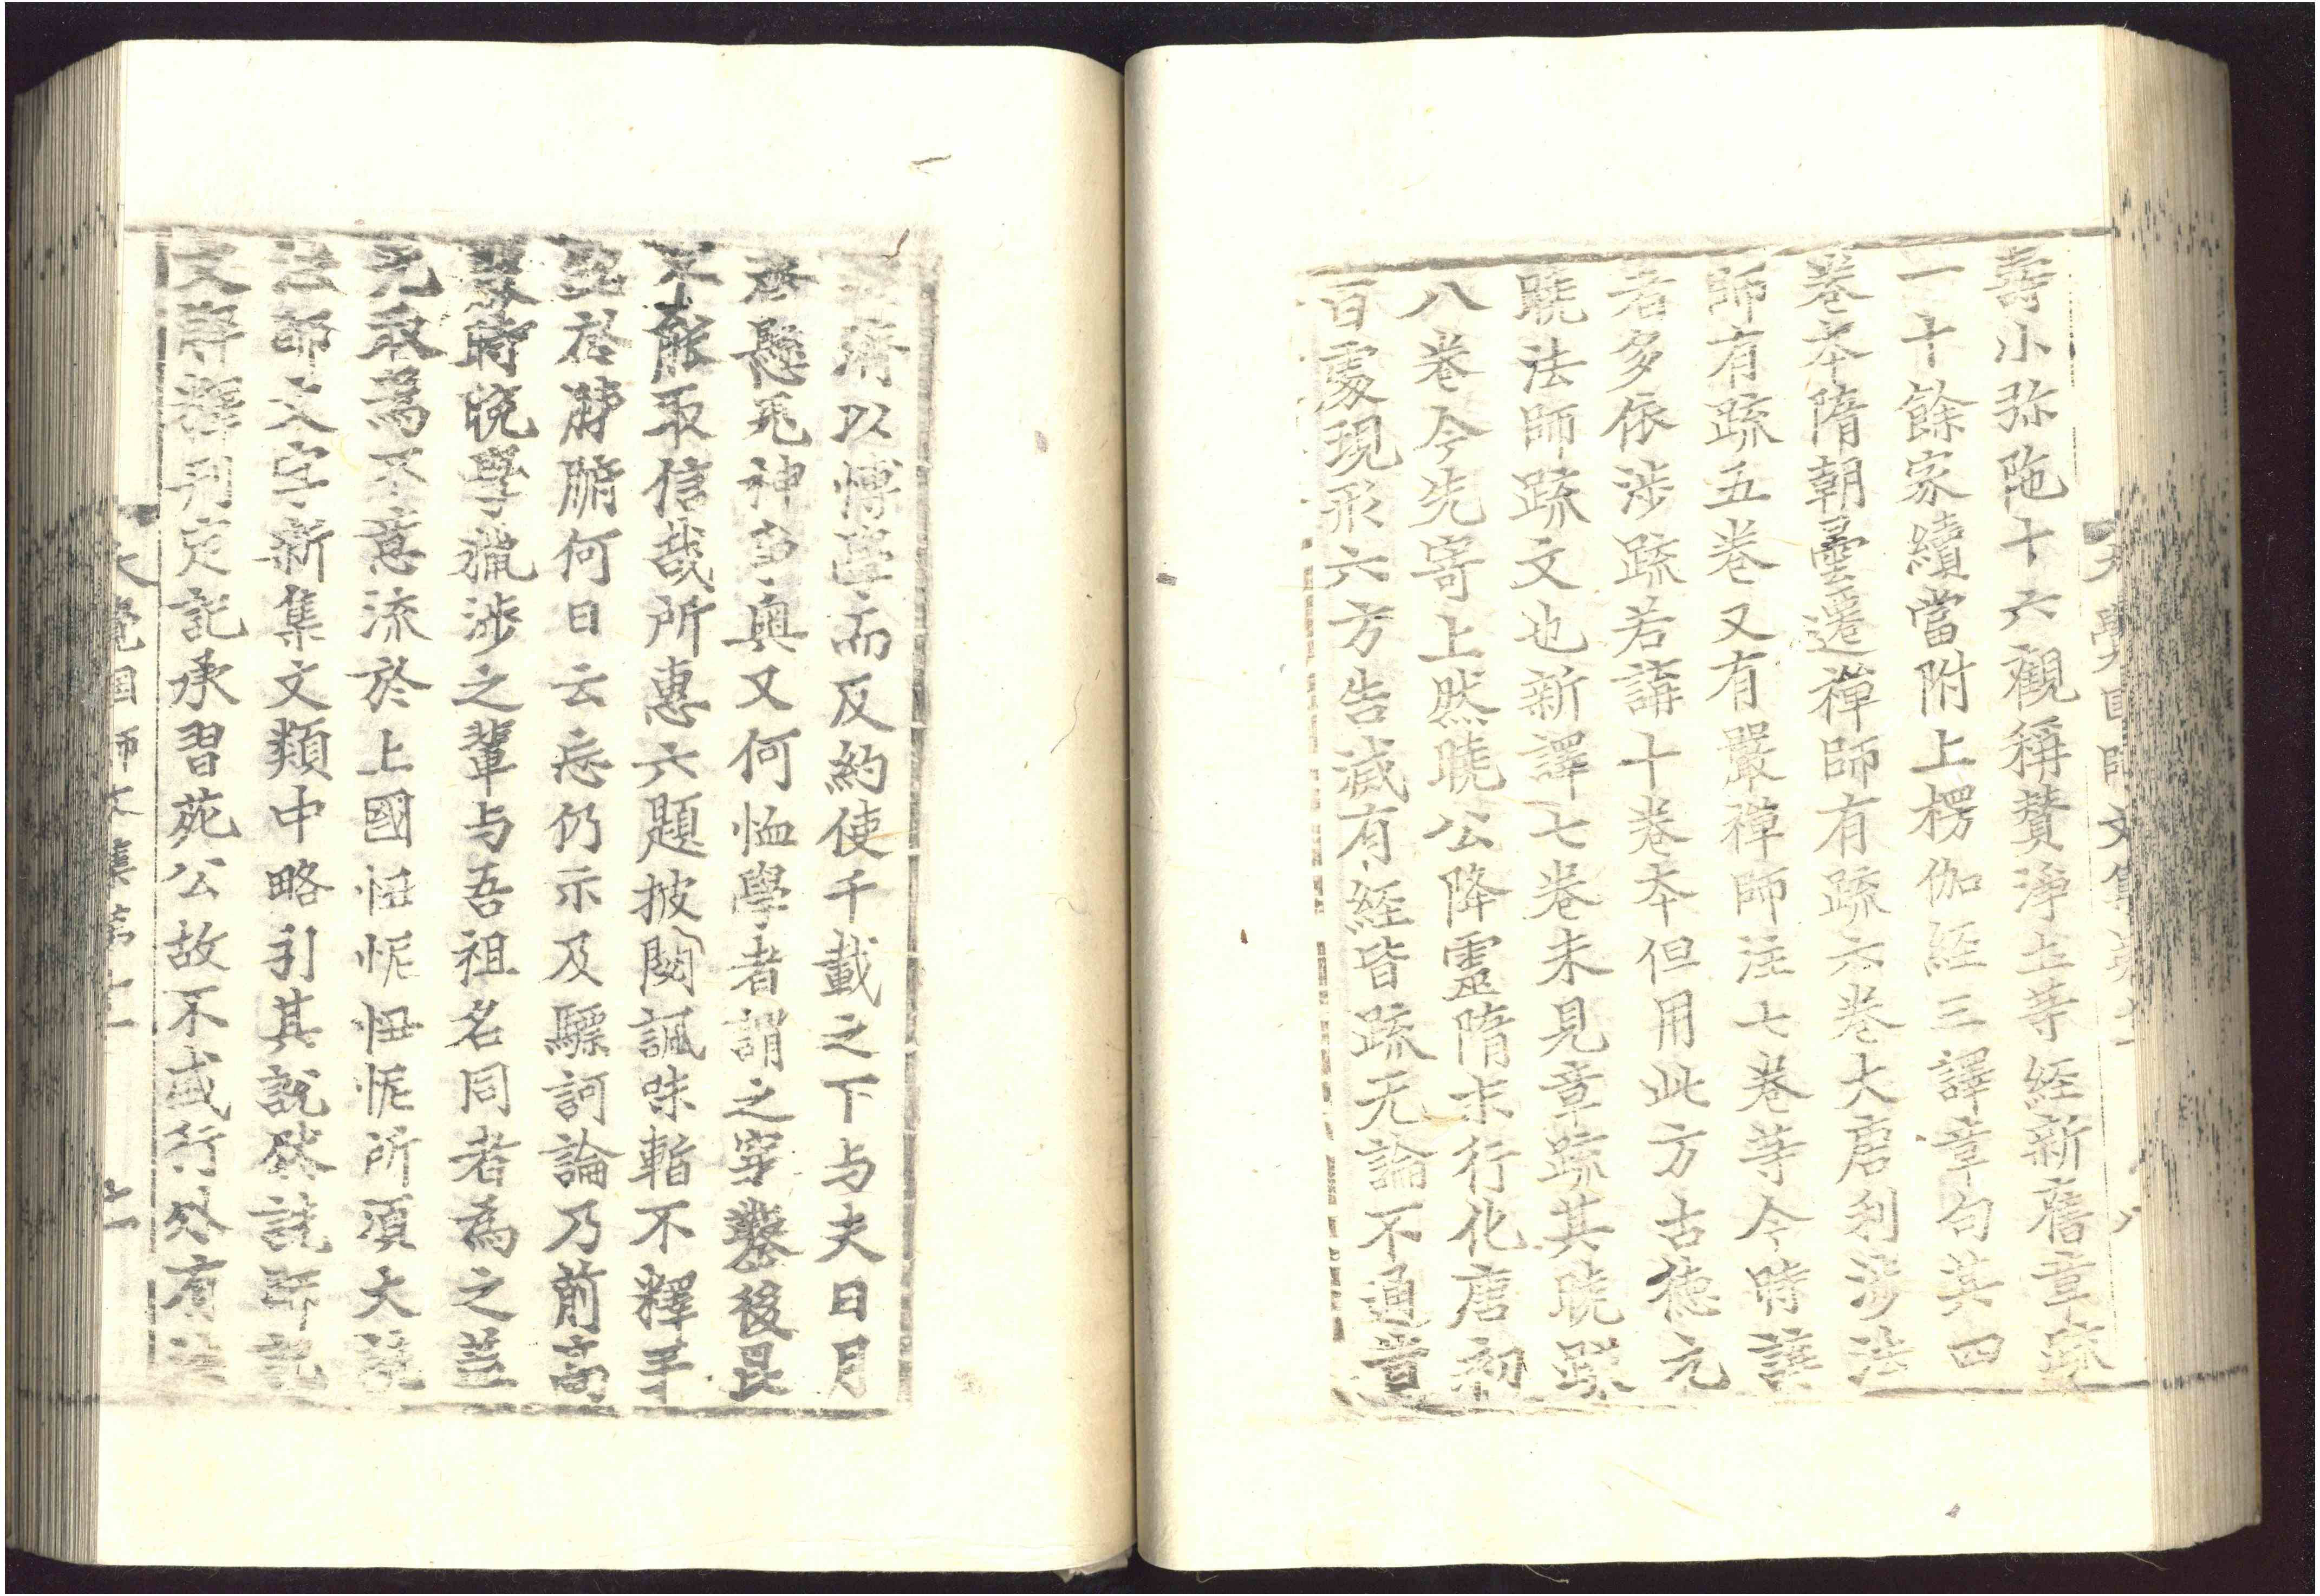 大覺國師文集第十一 八
壽小弥陁十六觀稱贊淨土等經新舊章疏
一十餘家續當附上楞伽經三譯章句其四
卷本隋朝曇遷禅師有疏六卷大唐利涉法
師有疏五卷又有嚴禅師注七卷等今時講
者多依涉疏若講十卷本但用此方古德元
曉法師疏文也新譯七卷未見章疏其曉疏
八卷今先寄上然曉公降靈隋末行化唐初
百處現形六方告滅有經皆疏无論不通昔
濟以博學而反約使千載之下与夫日月
懸鬼神奧又何恤學者謂之穿鑿後昆
不能取信哉所惠六題披閱諷味暫不釋手
銘於肺腑何日云忘仍示及驃訶論乃前高
時晓學獵涉之輩与吾祖名同者為之
元取為不意流於上國忸怩忸怩所須大
法師文字新集文類中略引其說然詵師記
文并釋刊定記承習苑公故不盛行外有
大覺國師文集第十一 十一